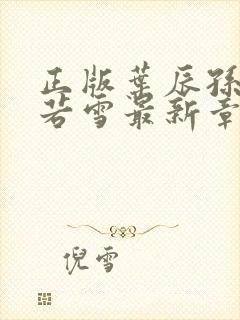 正版葉辰孫
若雪最新章
倪雪